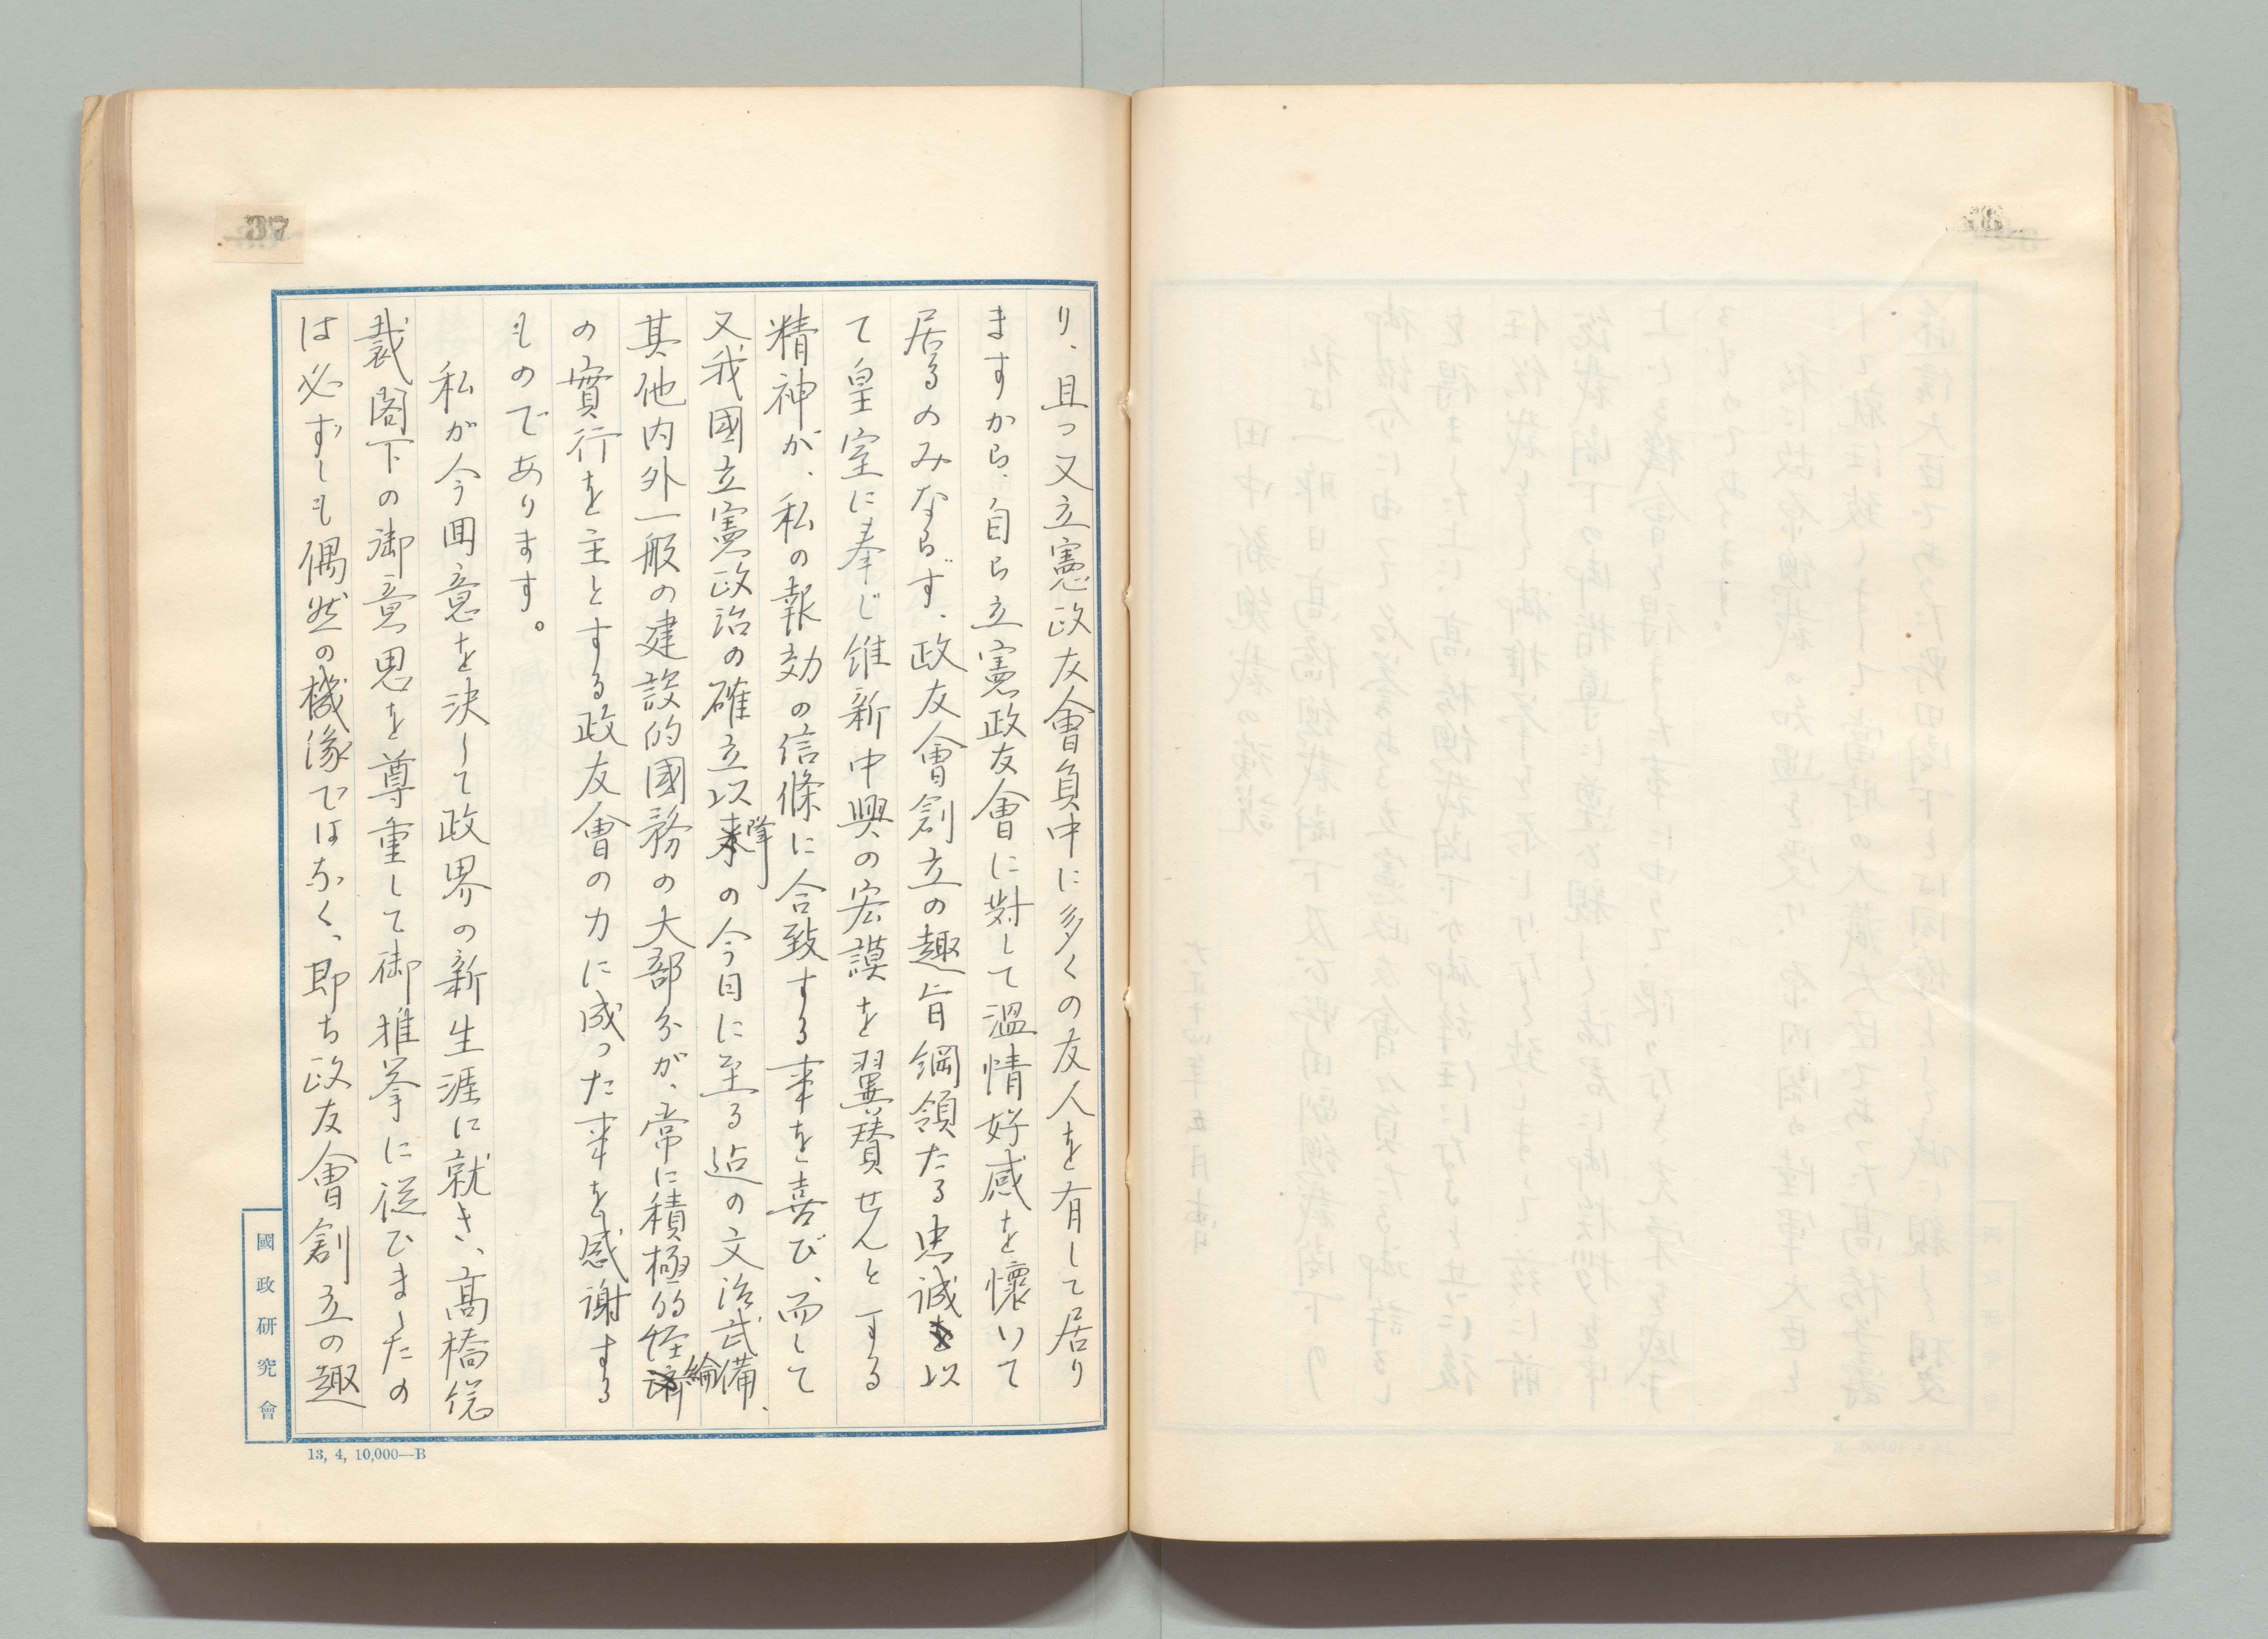 37
り、且つ又立憲政友會員中に多くの友人を有して居り
ますから、自ら立憲政友會に對して溫情好感を懷いて
居るのみならず、政友會創立の趣旨綱領たる忠誠を以
て皇室に奉じ維新中興の宏謨を翼賛せんとする
精神が、私の報効の信條に合致する事を喜び、而して
又我國立憲政治の確立以降の今日に至る迠の文治武備、
其他内外一般の建設的國務の大部分が、常に積極的経綸
の實行を主とする政友會の力に成った事を感謝する
ものであります。
私が今囬意を決して政界の新生涯に就き、髙橋総
裁閣下の御意思を尊重して御推挙に従ひましたの
は必ずしも偶然の機縁ではなく、即ち政友會創立の趣
國政研究會
13, 4, 10,000—B